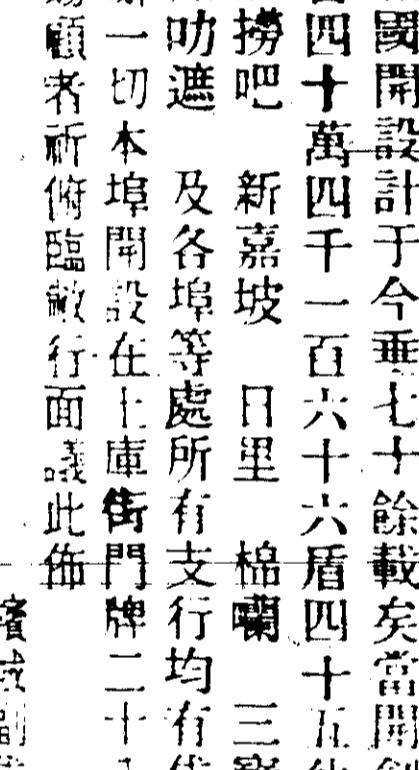 國開設計于今垂七十餘載矣當開
四十萬四千一百六十六盾四十五
撈吧 新嘉坡 日里 棉嘣 三寶
叻遮 及各埠等處所有支行均有
一切本埠開設在土庫街門牌二十
顧者祈俯臨敝行面議此佈
賓